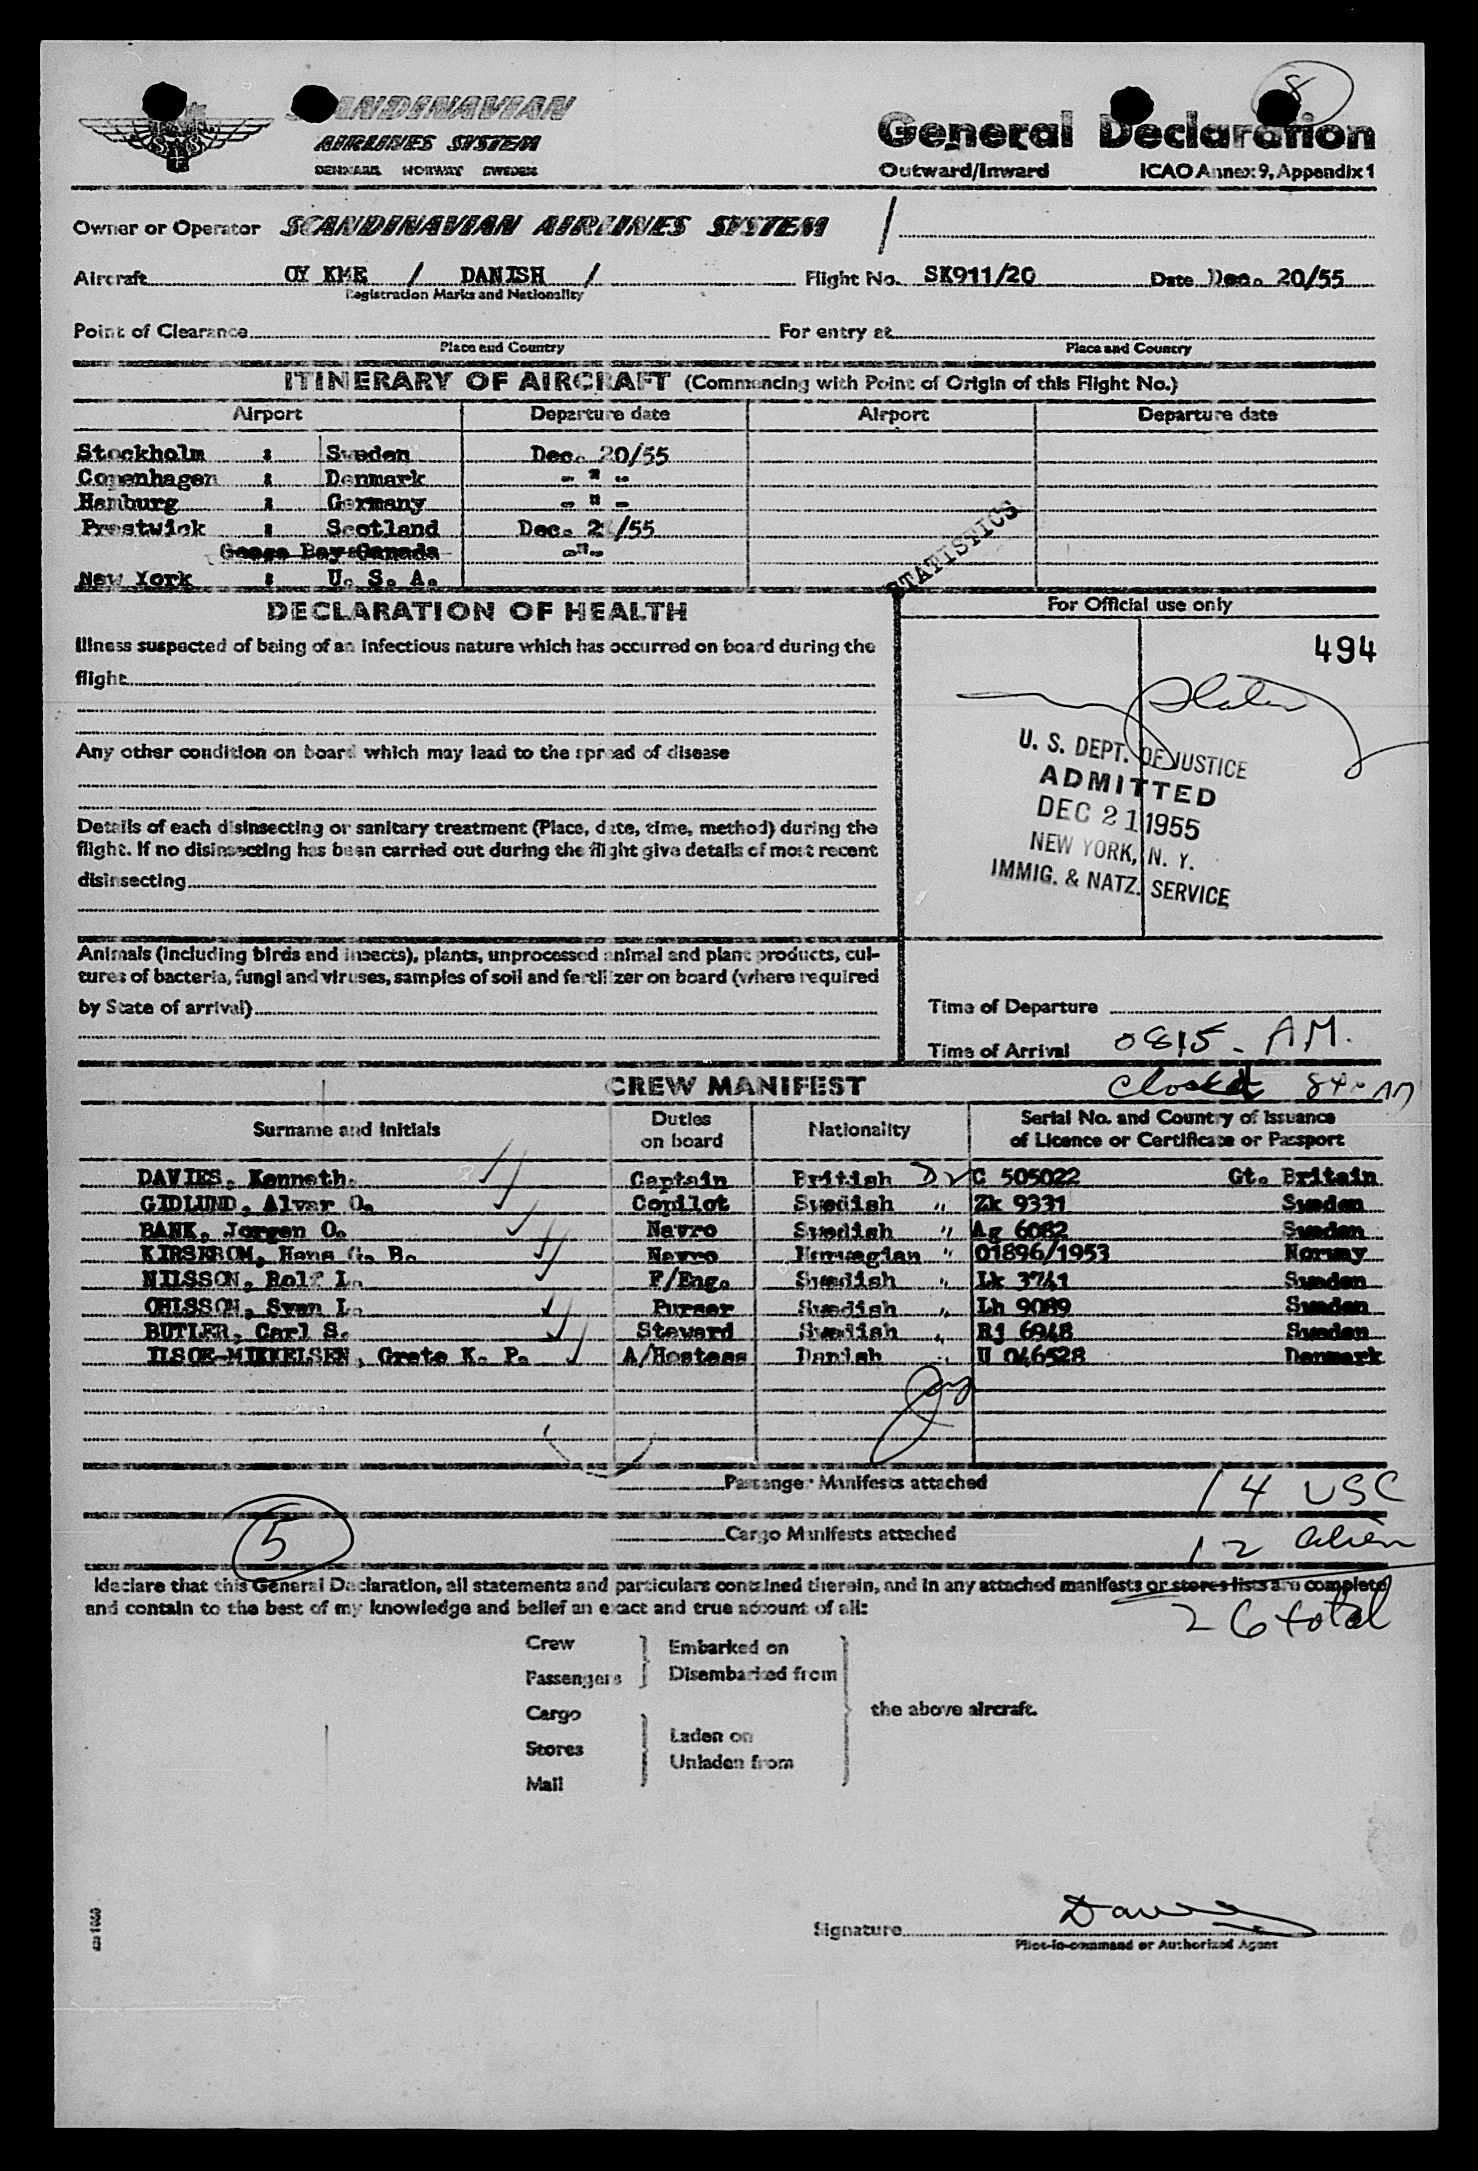 8
SCANDINAVIAN
AIRLINES SYSTEM
DENMARK NORWAY SWEDEN
General Declaration
Outward/Inward ICAO Annex 9, Appendix 1
Owner or Operator SCANDINAVIAN AIRLINES SYSTEM /
Aircraft OY KME / DANISH / Flight No. SK911/20 Date Dec. 20/55
Registration Marks and Nationality
Point of Clearance For entry at
Place and Country Place and Country
ITINERARY OF AIRCRAFT (Commencing with Point of Origin of this Flight No.)
Airport Departure date Airport Departure date
Stockholm : Sweden Dec. 20/55
Copenhagen : Denmark - " -
Hamburg : Germany - " -
Prestwick : Scotland Dec. 2 /55
Goose Bay:Canada -"-
New York : U. S. A.
STATISTICS
DECLARATION OF HEALTH
For Official use only
Illness suspected of being of an infectious nature which has occurred on board during the
flight
494
Any other condition on board which may lead to the spread of disease
U. S. DEPT. OF JUSTICE
ADMITTED
DEC 21 1955
NEW YORK, N. Y.
IMMIG. & NATZ. SERVICE
Details of each disinsecting or sanitary treatment (Place, date, time, method) during the
flight. If no disinsecting has been carried out during the flight give details of most recent
disinsecting
Animals (including birds and insects), plants, unprocessed animal and plant products, cul-
tures of bacteria, fungi and viruses, samples of soil and fertilizer on board (where required
by State of arrival)
Time of Departure
Time of Arrival 0815 - AM.
CREW MANIFEST
Closed 840 AM
Surname and Initials Duties on board Nationality Serial No. and Country of Issuance of Licence or Certificate or Passport
DAVIES, Kenneth. Captain British C 505022 Gt. Britain
GIDLUND, Alvar O. Copilot Swedish " Zk 9331 Sweden
BANK, Jorgen O. Navro Swedish " Ag 6082 Sweden
KIRSEBOM, Hans G. B. Navro Norwegian " 01896/1953 Norway
NILSSON, Rolf L. F/Eng. Swedish " Lk 3741 Sweden
OHLSSON, Sven L. Purser Swedish " Lh 9089 Sweden
BUTLER, Carl S. Steward Swedish " Rj 6948 Sweden
ILSOE-MIKKELSEN, Grete K. P. A/Hostess Danish " U 046528 Denmark
Passenger Manifests attached
14 USC
5
Cargo Manifests attached
12 Alien
I declare that this General Declaration, all statements and particulars contained therein, and in any attached manifests or stores lists are complete
and contain to the best of my knowledge and belief an exact and true account of all:
26 total
Crew
Passengers
Embarked on
Disembarked from
Cargo
Stores
Mail
Laden on
Unladen from
the above aircraft.
Signature Davies
Pilot-in-command or Authorized Agent